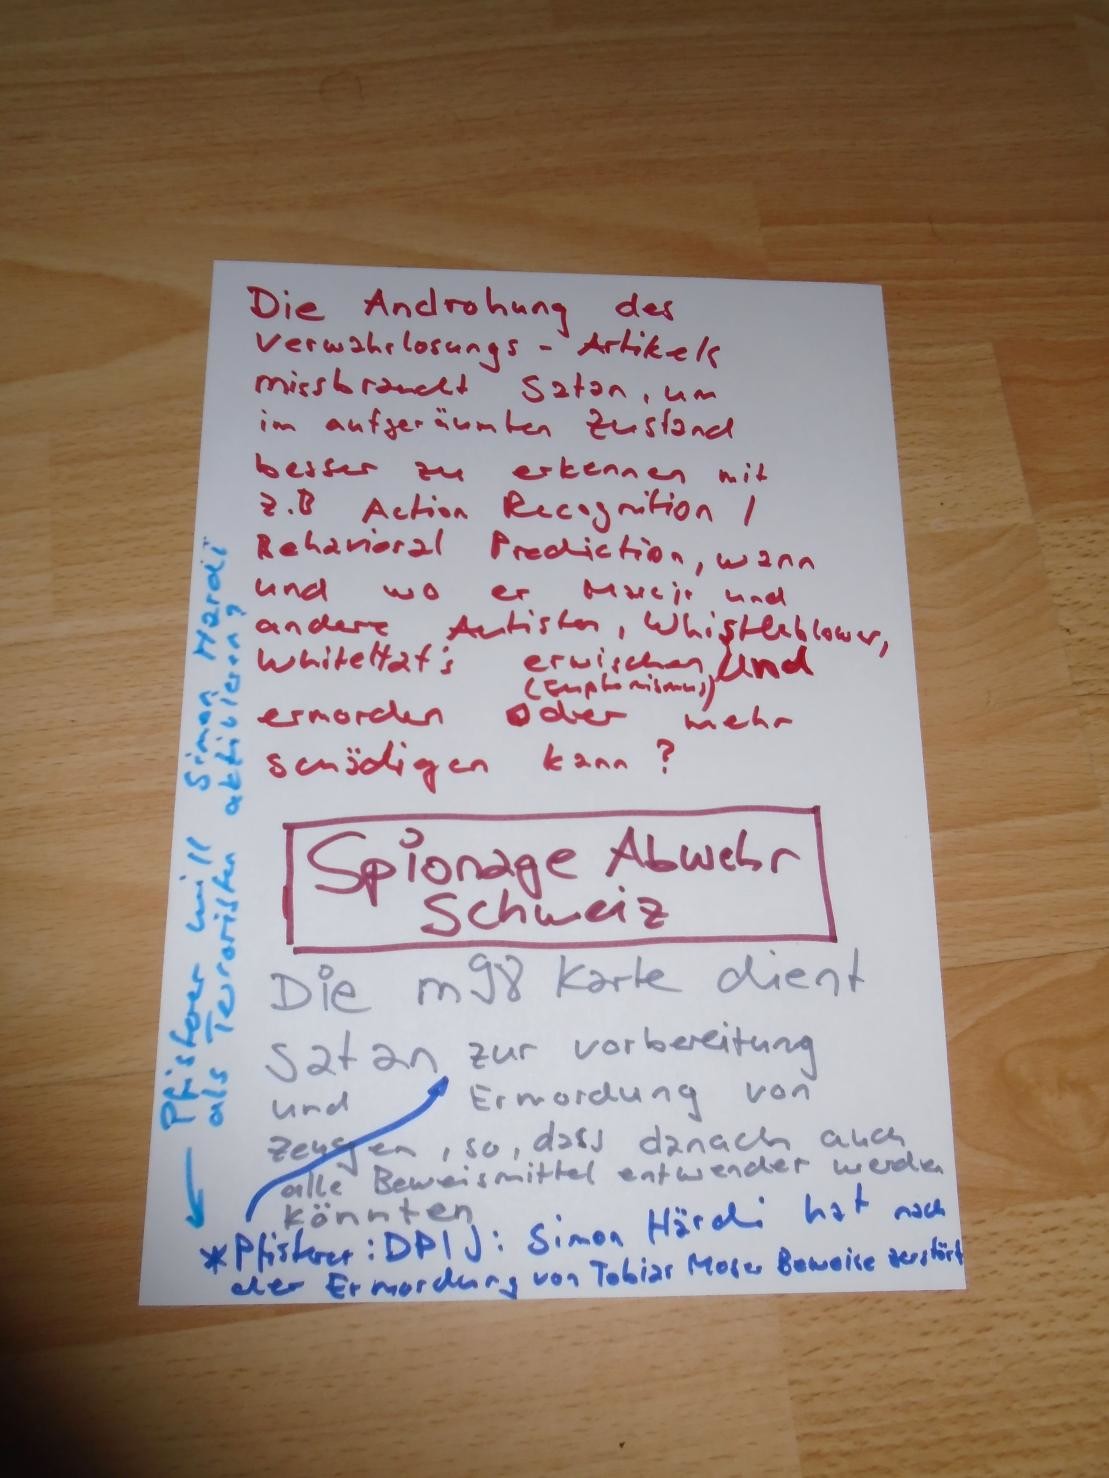 Die Androhung des
Verwahrlosungs - Artikels
missbraucht Satan, um
im aufgeräumten Zustand
besser zu erkennen mit
z.B Action Recognition /
Behavioral Prediction, wann
und wo er und
andere Autisten, Whistleblower,
WhiteHat's erwischen, und
(Euphemismus)
ermorden oder mehr
schädigen kann?
Spionage Abwehr
Schweiz
Die m98 Karte dient
Satan zur vorbereitung
und Ermordung von
Zeugen, so, dass danach auch
alle Beweismittel entwendet werden
könnten
* Pfisterer: DPIJ: Simon Härdi hat nach
der Ermordung von Tobias Moser Beweise zerstört
Pfisterer will Simon Härdi
als Terroristen aktivieren?